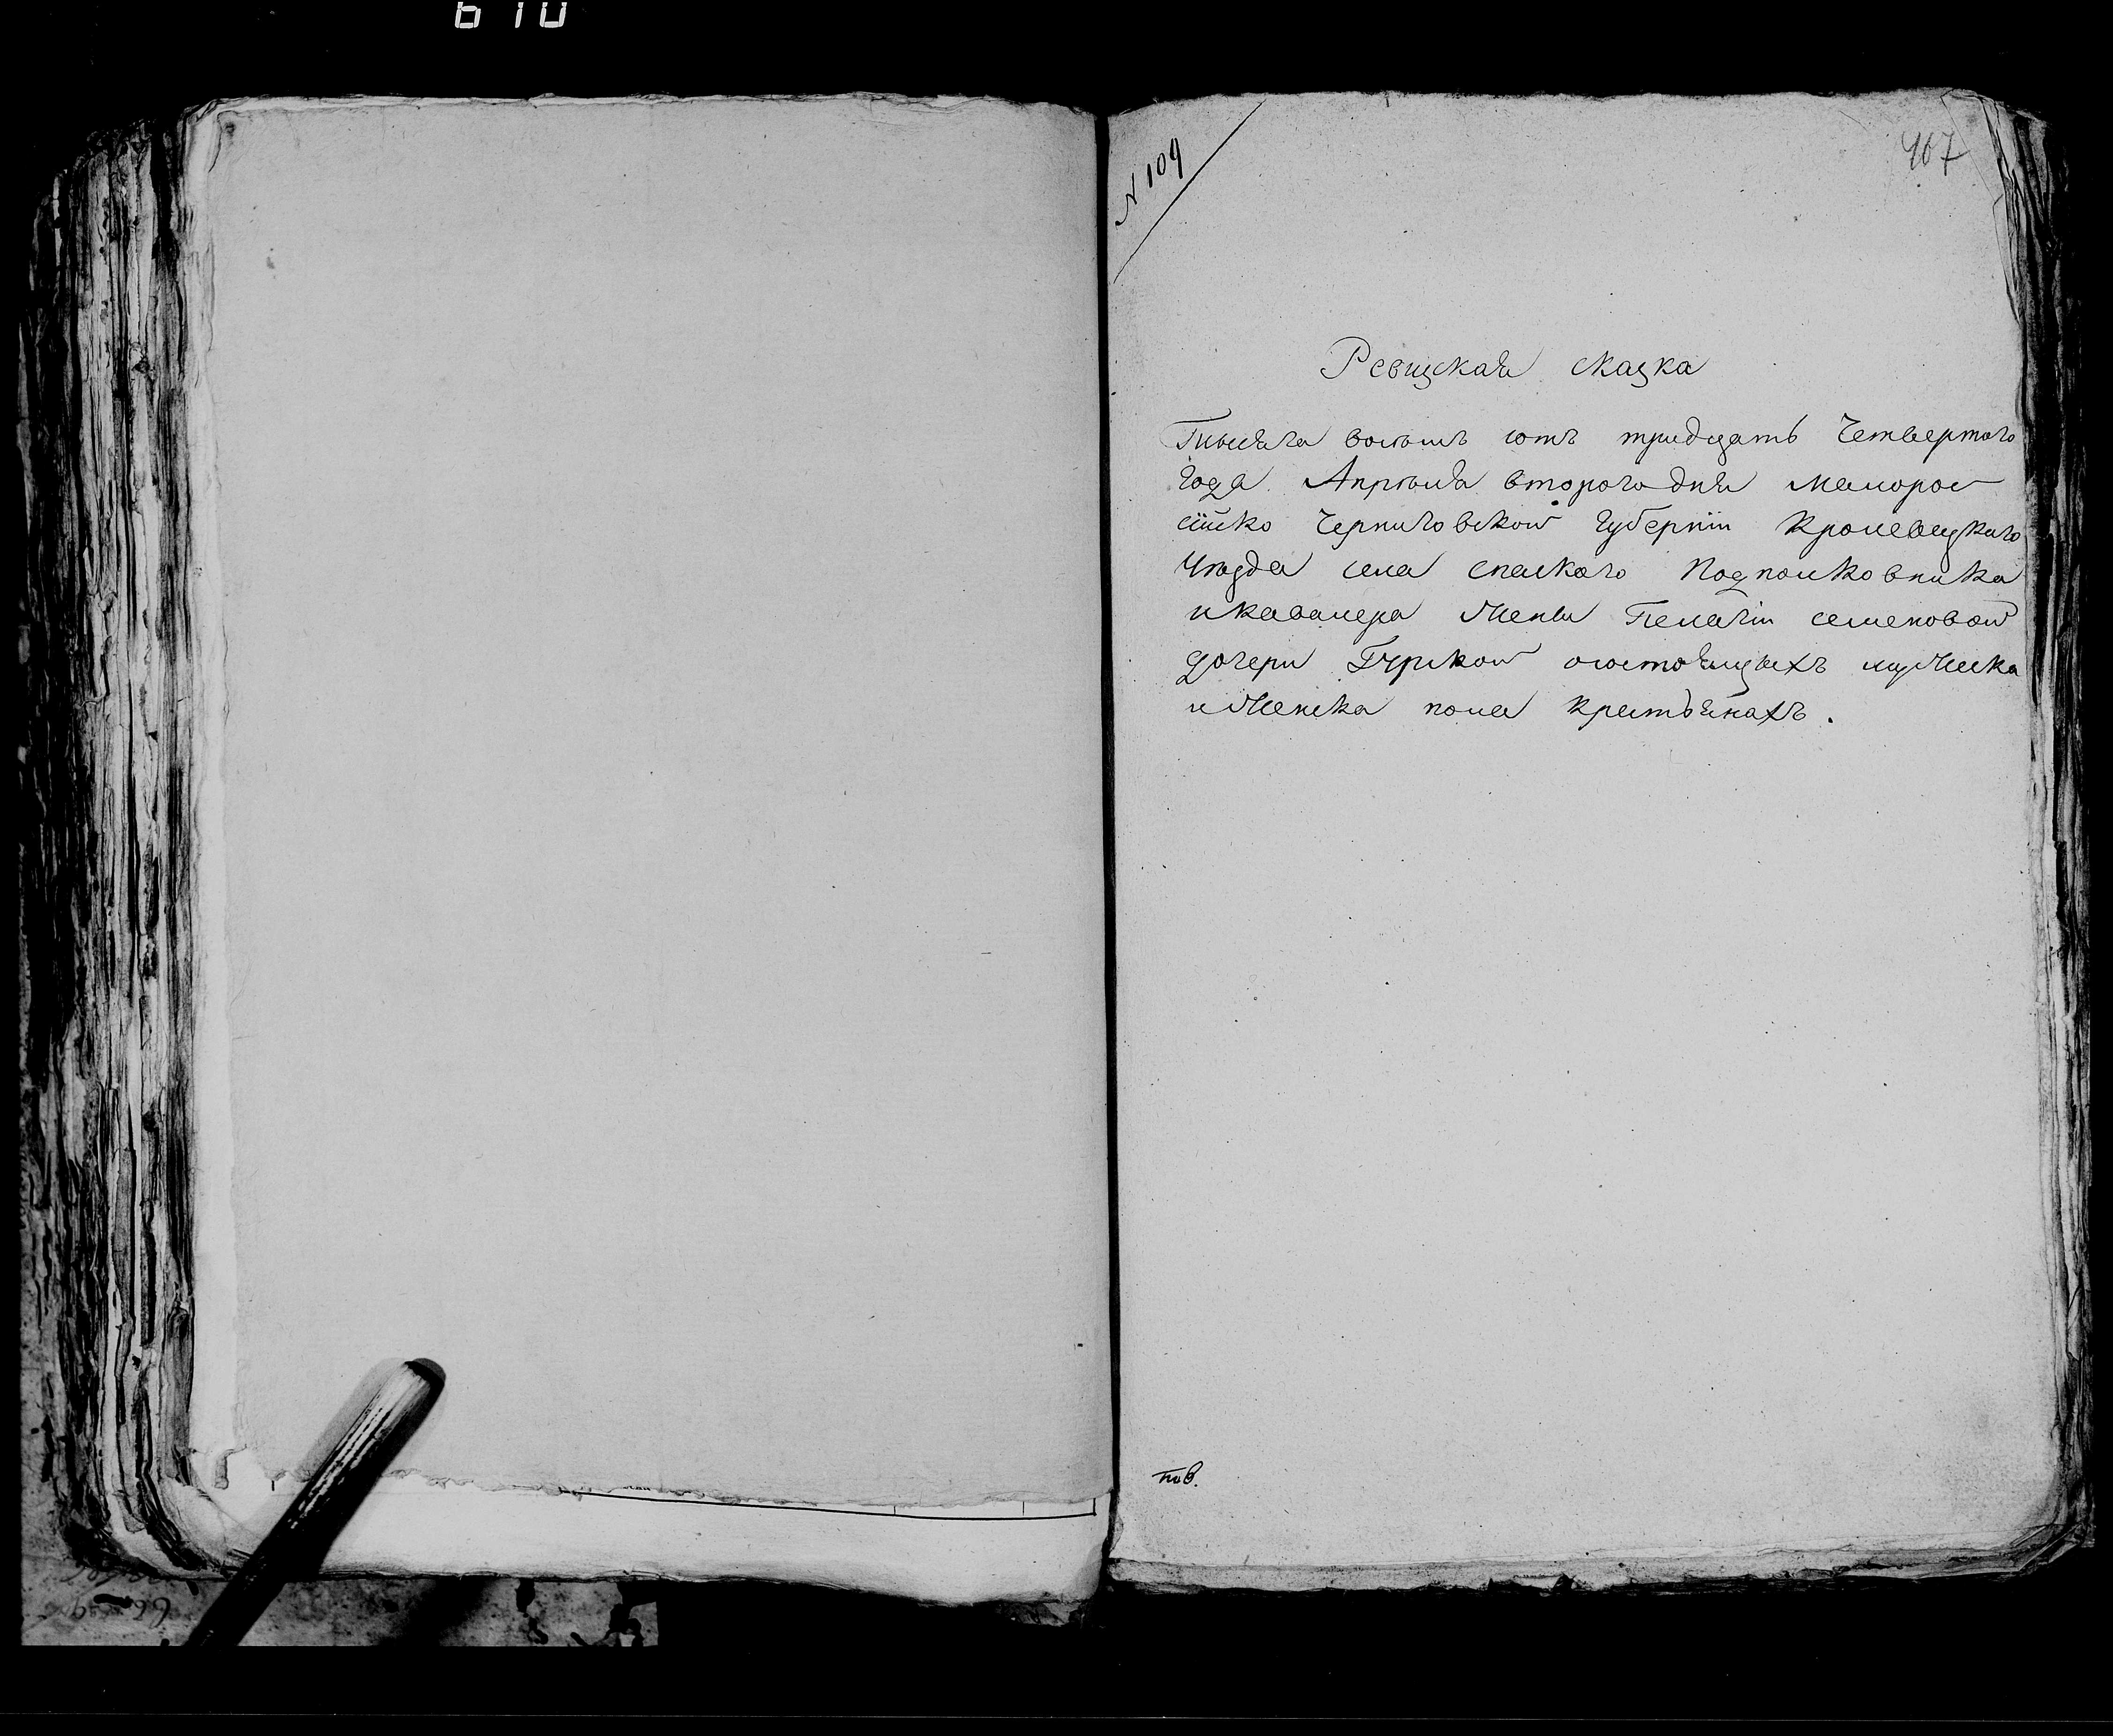 610
N 109
407
Ревизская сказка
Тысяча восемь сотъ тридцать Четвертого
Года Апрѣля второго дня Малорос
сійско Черниговской Губерніи Кролевецкого
Уѣзда села спаского Подполковника
и кавалера Жены Пелагіи семеновой
дочери Гурской осостоящихъ мужеска
и Женска пола крестьянахъ.